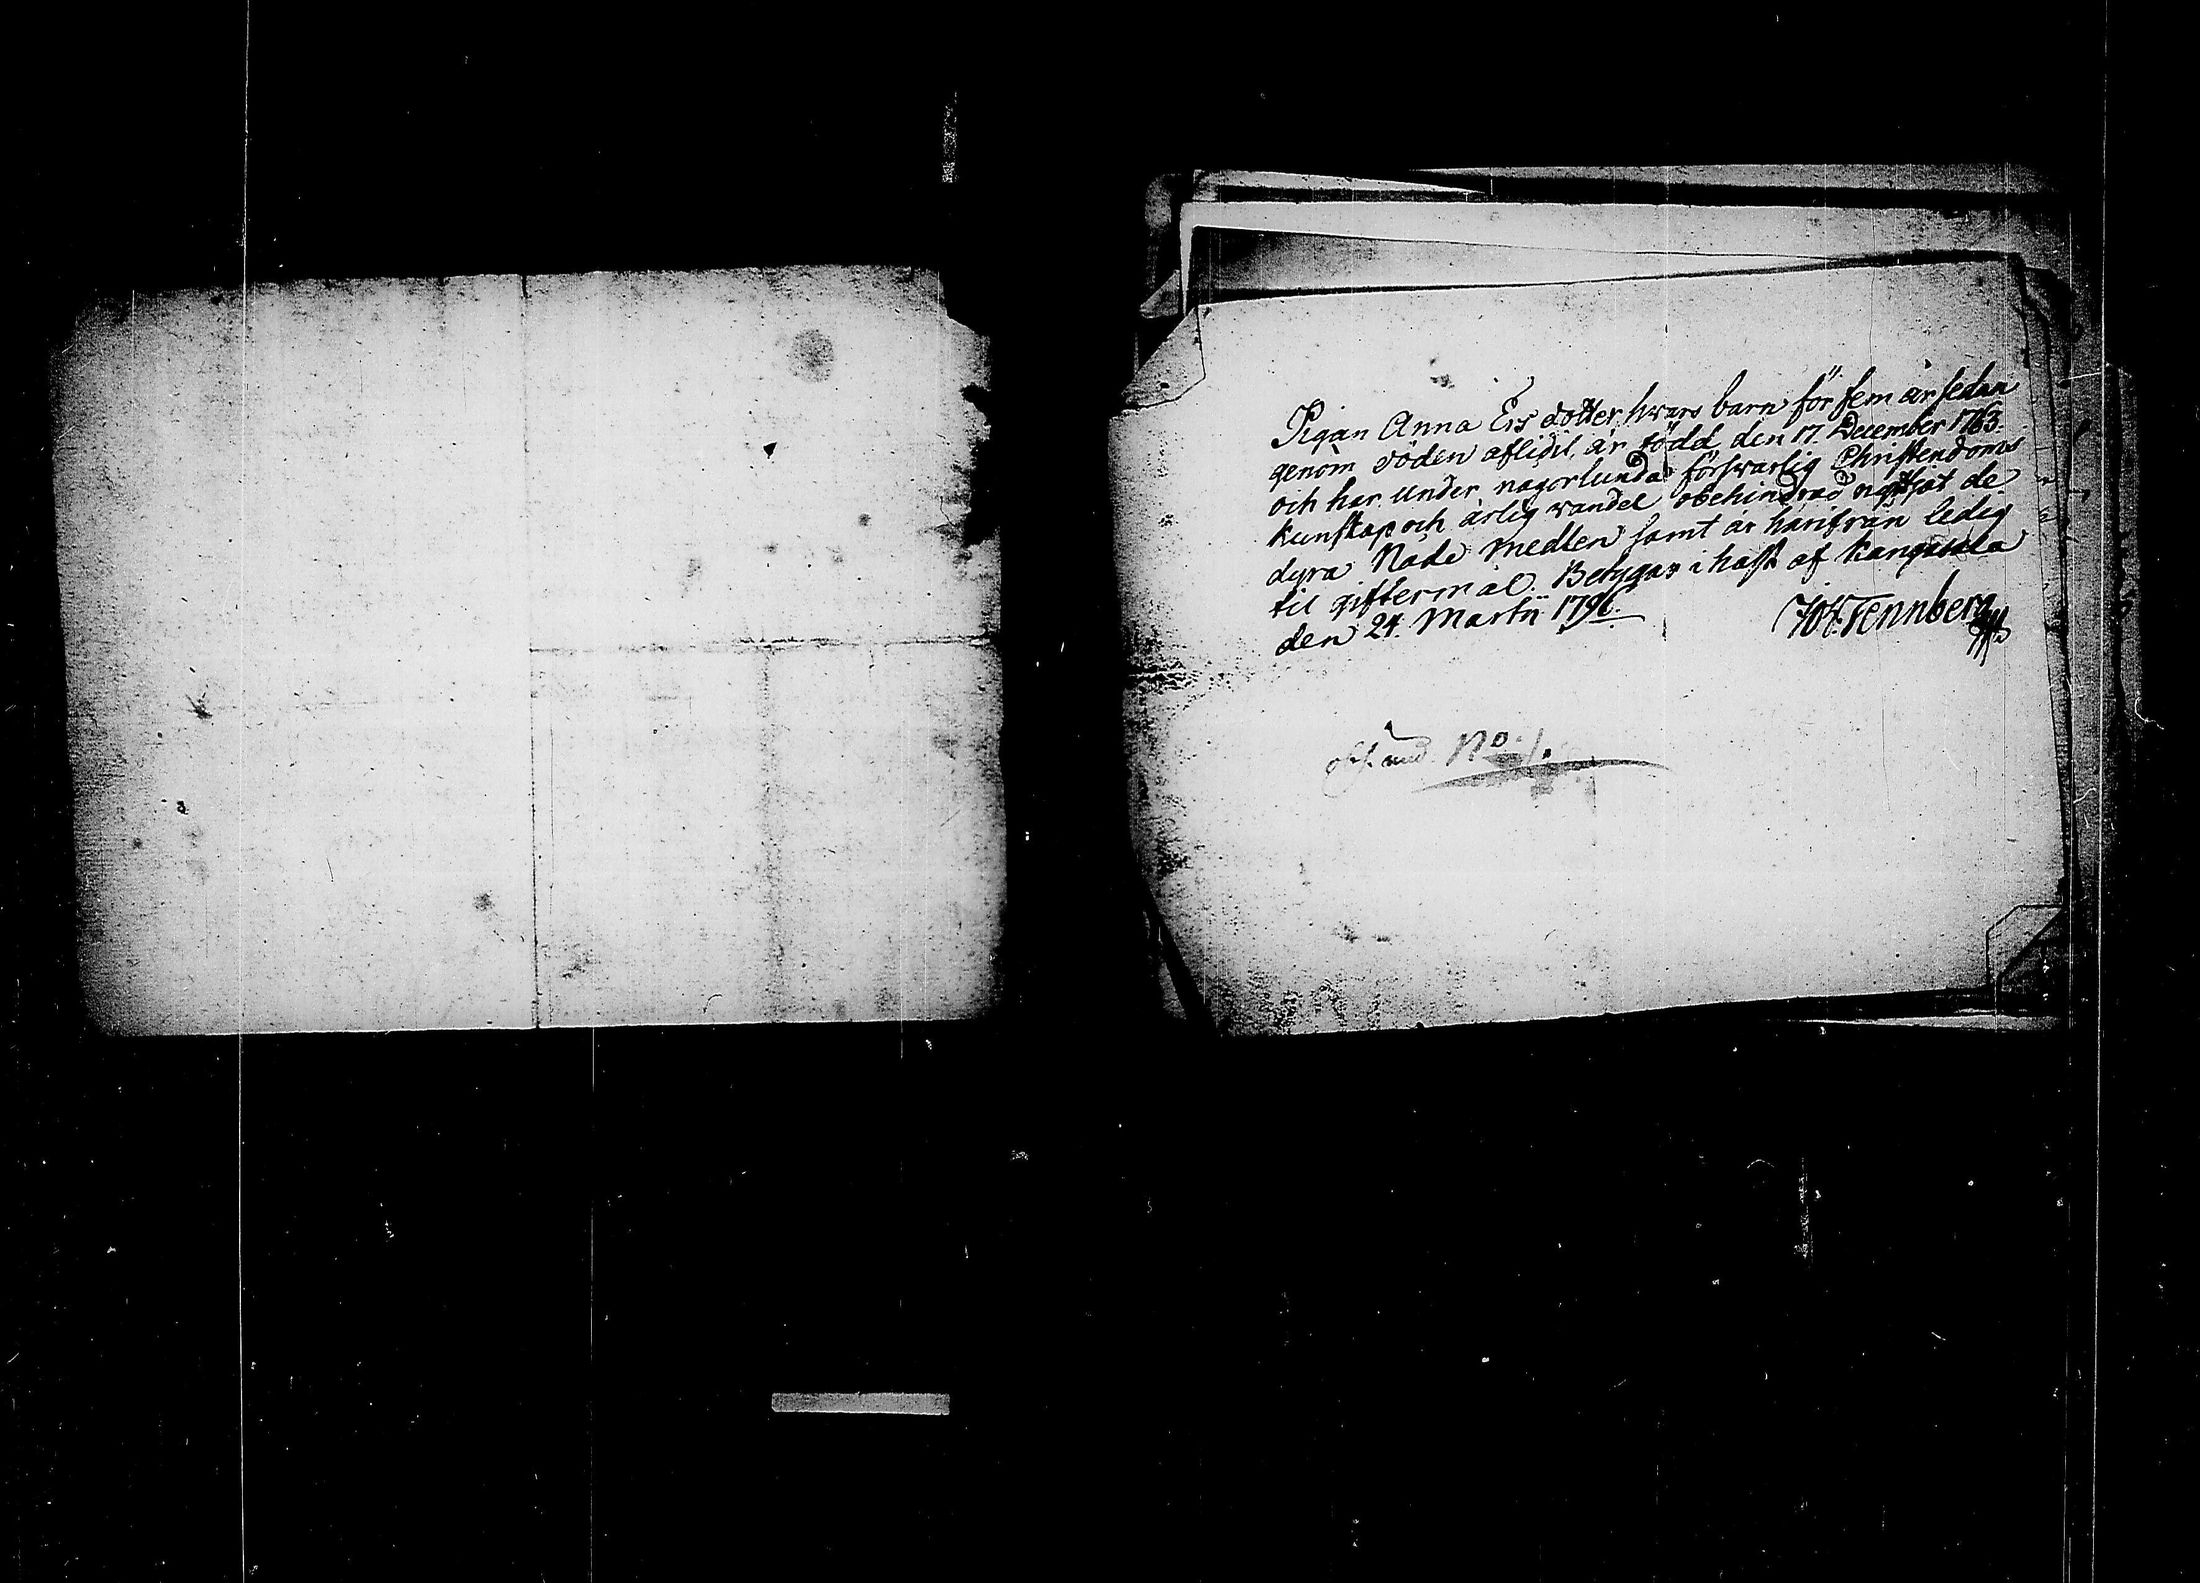 Pigan Anna Ers dotter, hvars barn för fem år sedan
genom döden aflidit, är född den 17. December 1763.
och har under nagorlunda försvarlig Christendoms
kunskap och ärlig wandel obehindrad nyttjat de
dyra Nade medlen samt är härifrån ledig
til giftermål. Betygar i hast af Kangasala
den 24. Martii 1796.
Joh. Tennberg
No. 1.